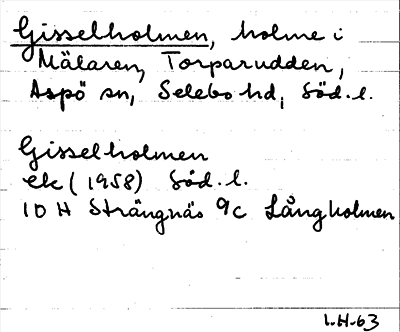 Gisselholmen, holme i
Mälaren, Torparudden,
Aspö sn, Selebo hd, Söd.l.
Gisselholmen
ek (1958) Söd.l.
10 H Strängnäs 9c Långholmen
I.H.63